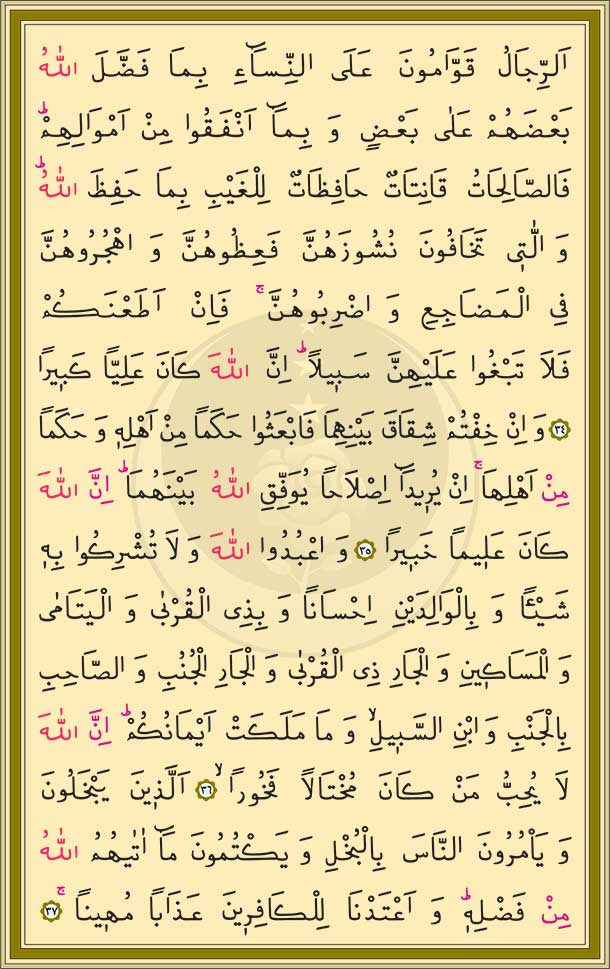 اَلرِّجَالُ قَوَّامُونَ عَلَى النِّسَٓاءِ بِمَا فَضَّلَ اللّٰهُ
بَعْضَهُمْ عَلٰى بَعْضٍ وَ بِمَٓا اَنْفَقُوا مِنْ اَمْوَالِهِمْۜ
فَالصَّالِحَاتُ قَانِتَاتٌ حَافِظَاتٌ لِلْغَيْبِ بِمَا حَفِظَ اللّٰهُۜ
وَ الّٰتٖى تَخَافُونَ نُشُوزَهُنَّ فَعِظُوهُنَّ وَ اهْجُرُوهُنَّ
فِى الْمَضَاجِعِ وَ اضْرِبُوهُنَّۚ فَاِنْ اَطَعْنَكُمْ
فَلَا تَبْغُوا عَلَيْهِنَّ سَبٖيلًاۜ اِنَّ اللّٰهَ كَانَ عَلِيًّا كَبٖيرًا
﴿٣٤﴾ وَ اِنْ خِفْتُمْ شِقَاقَ بَيْنِهِمَا فَابْعَثُوا حَكَمًا مِنْ اَهْلِهٖ وَ حَكَمًا
مِنْ اَهْلِهَاۚ اِنْ يُرٖيدَٓا اِصْلَاحًا يُوَفِّقِ اللّٰهُ بَيْنَهُمَاۜ اِنَّ اللّٰهَ
كَانَ عَلٖيمًا خَبٖيرًا ﴿٣٥﴾ وَ اعْبُدُوا اللّٰهَ وَ لَا تُشْرِكُوا بِهٖ
شَيْـًٔا وَ بِالْوَالِدَيْنِ اِحْسَانًا وَ بِذِى الْقُرْبٰى وَ الْيَتَامٰى
وَ الْمَسَاكٖينِ وَ الْجَارِ ذِى الْقُرْبٰى وَ الْجَارِ الْجُنُبِ وَ الصَّاحِبِ
بِالْجَنْبِ وَ ابْنِ السَّبٖيلِۙ وَ مَا مَلَكَتْ اَيْمَانُكُمْۜ اِنَّ اللّٰهَ
لَا يُحِبُّ مَنْ كَانَ مُخْتَالًا فَخُورًاۙ ﴿٣٦﴾ اَلَّذٖينَ يَبْخَلُونَ
وَ يَاْمُرُونَ النَّاسَ بِالْبُخْلِ وَ يَكْتُمُونَ مَٓا اٰتٰيهُمُ اللّٰهُ
مِنْ فَضْلِهٖۜ وَ اَعْتَدْنَا لِلْكَافِرٖينَ عَذَابًا مُهٖينًاۚ ﴿٣٧﴾